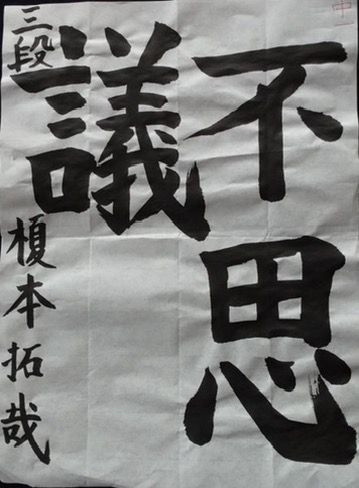 不思
議
三段 榎本拓哉
中